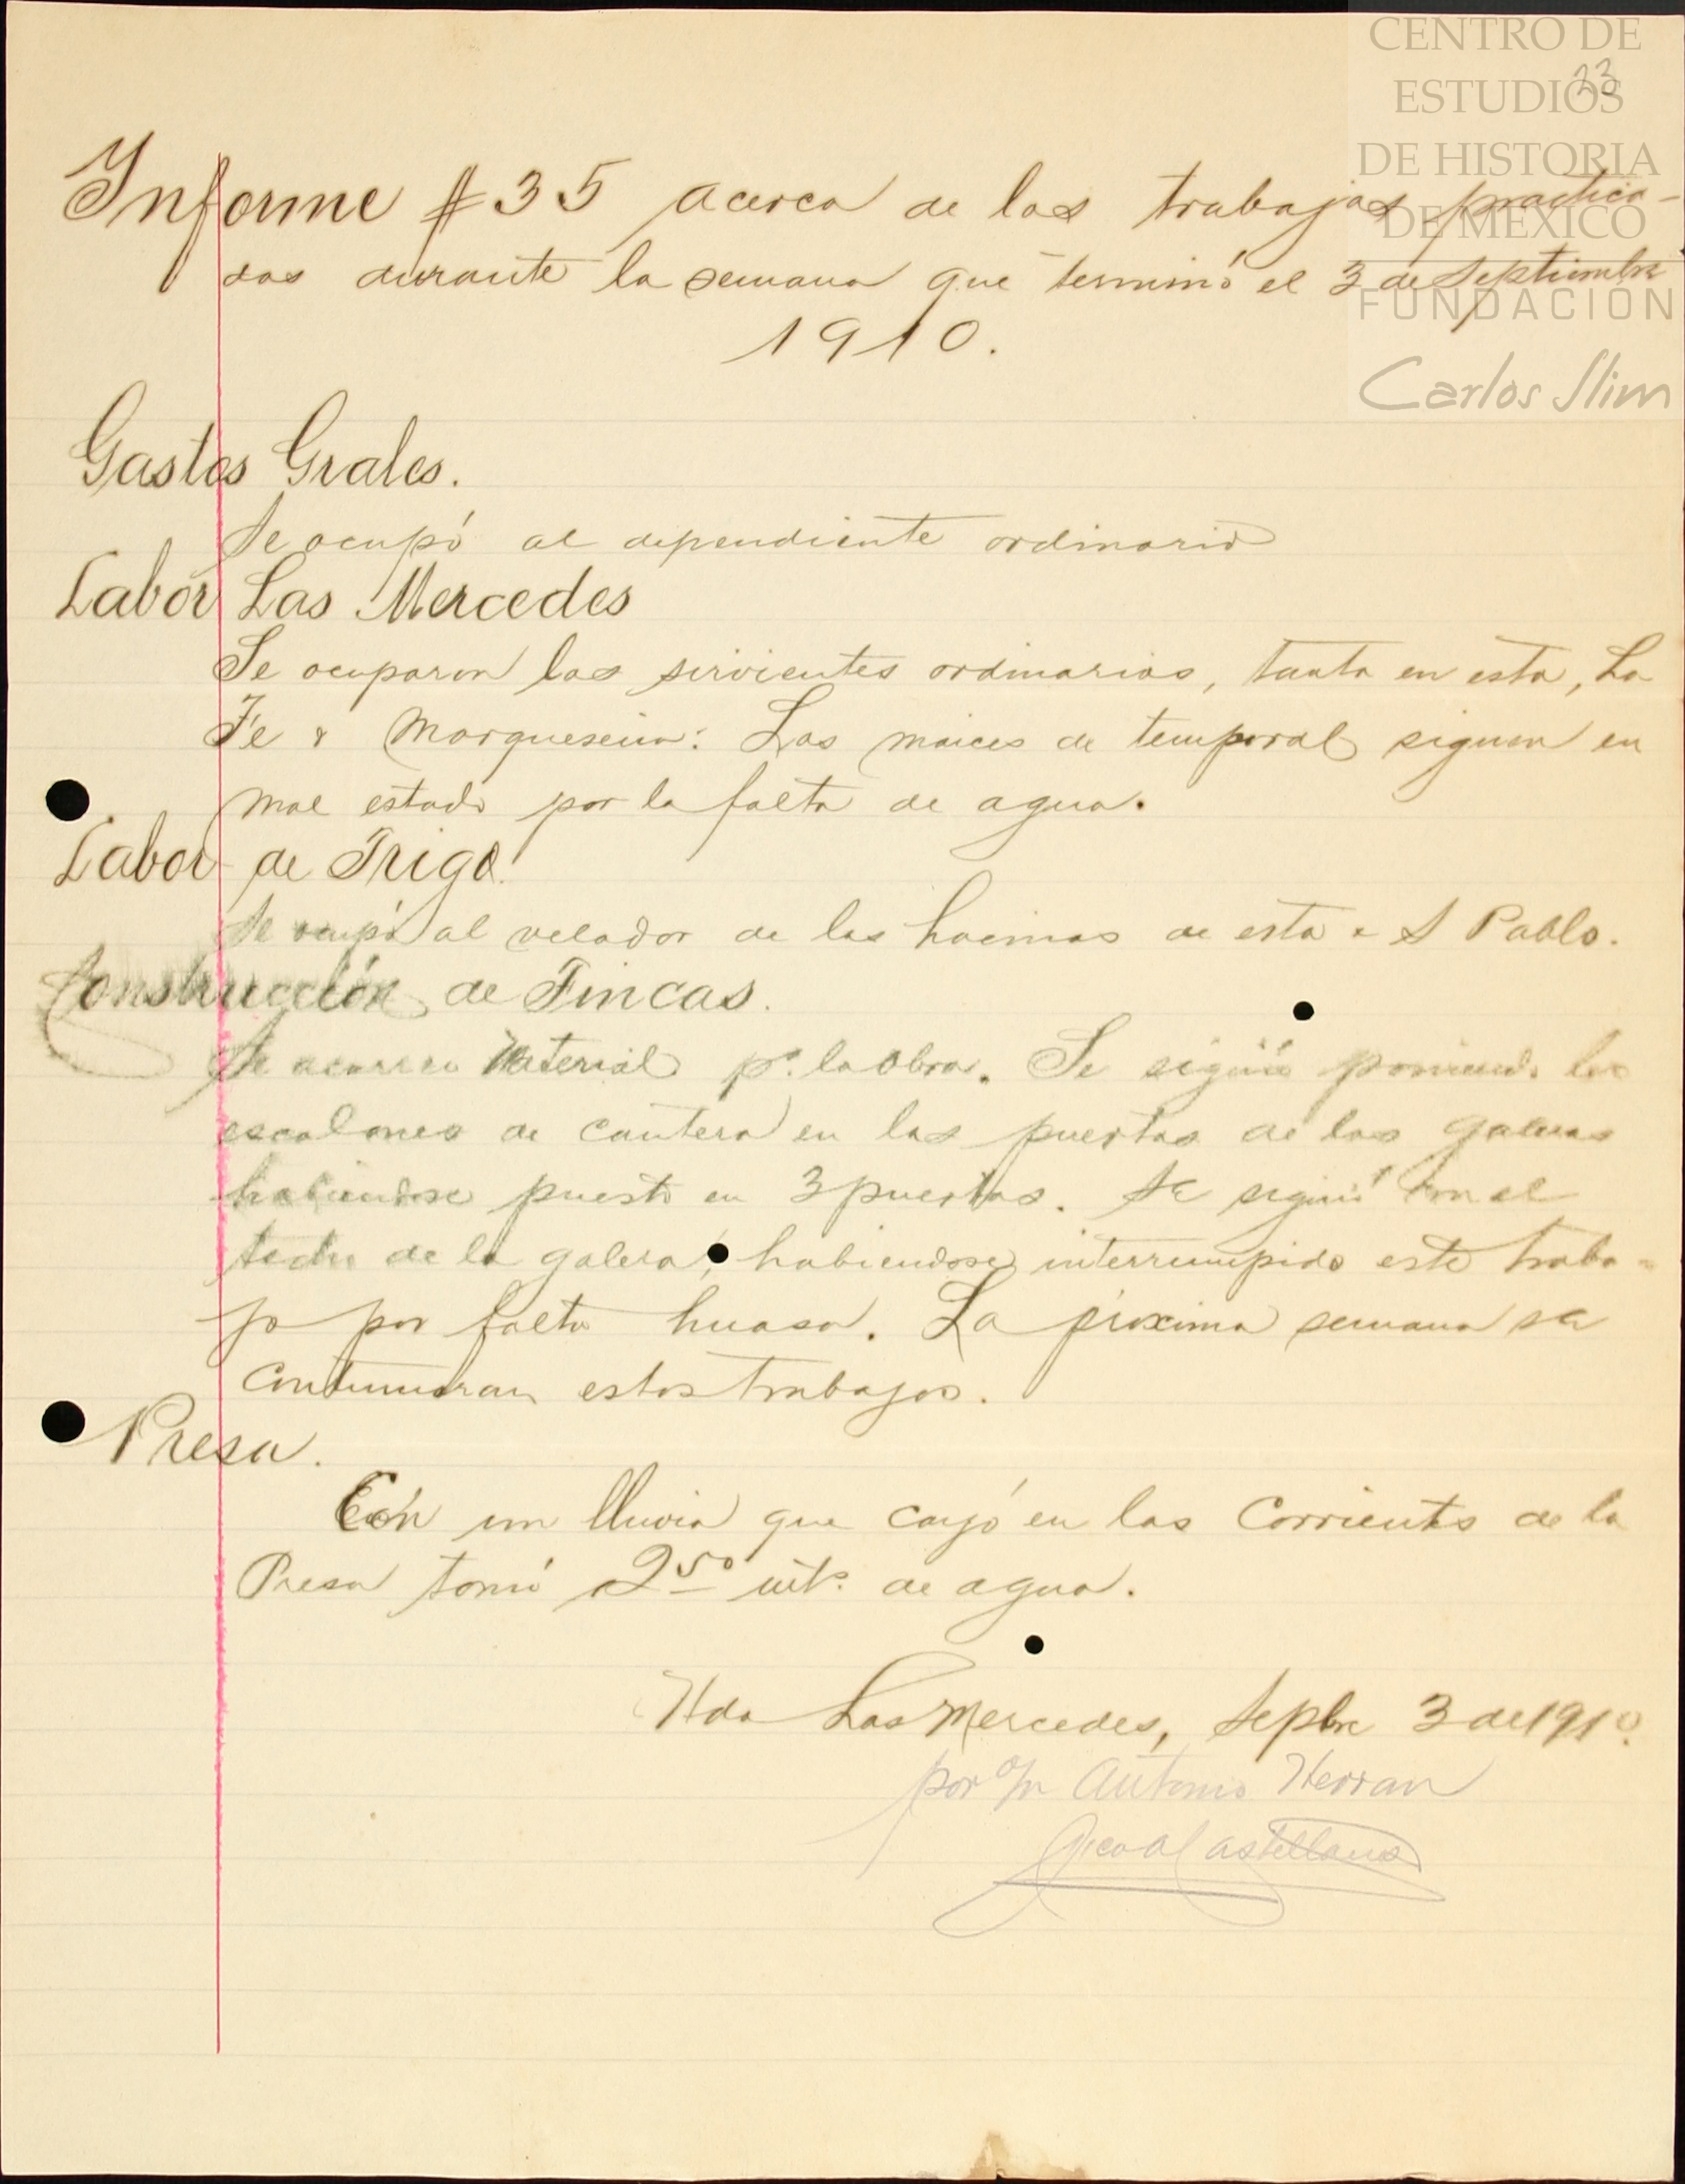 CENTRO DE
ESTUDIOS
DE HISTORIA
DE MEXICO
FUNDACION
Carlos Slim
23
Informe # 35 acerca de los trabajos practica-
dos durante la semana que terminó el 3 de Septiembre
1910.
Gastos Grales.
Se ocupó al dependiente ordinario
Labor Las Mercedes
Se ocuparon los sirvientes ordinarios, tanto en esta, La
Fe y Marqueseña: Los maices de temporal siguen en
mal estado por la falta de agua.
Labor de Trigo.
Se ocupó al velador de las hacinas de esta e S Pablo.
Construcción de Fincas.
Se acarreo Material pª la obra. Se siguió poniendo los
escalones de cantera en las puertas de las galeras
habiendose puesto en 3 puertas. Se siguió con el
techo de la galera, habiendose interrumpido este traba-
jo por falta huasa. La próxima semana se
continuaran estos trabajos.
Presa.
Con un lluvia que cayó en las Corrientes de la
Presa tomó 2 50 mts. de agua.
Hda Las Mercedes, Sepbre 3 de 1910.
por o/n Antonio Herran
Castellanos